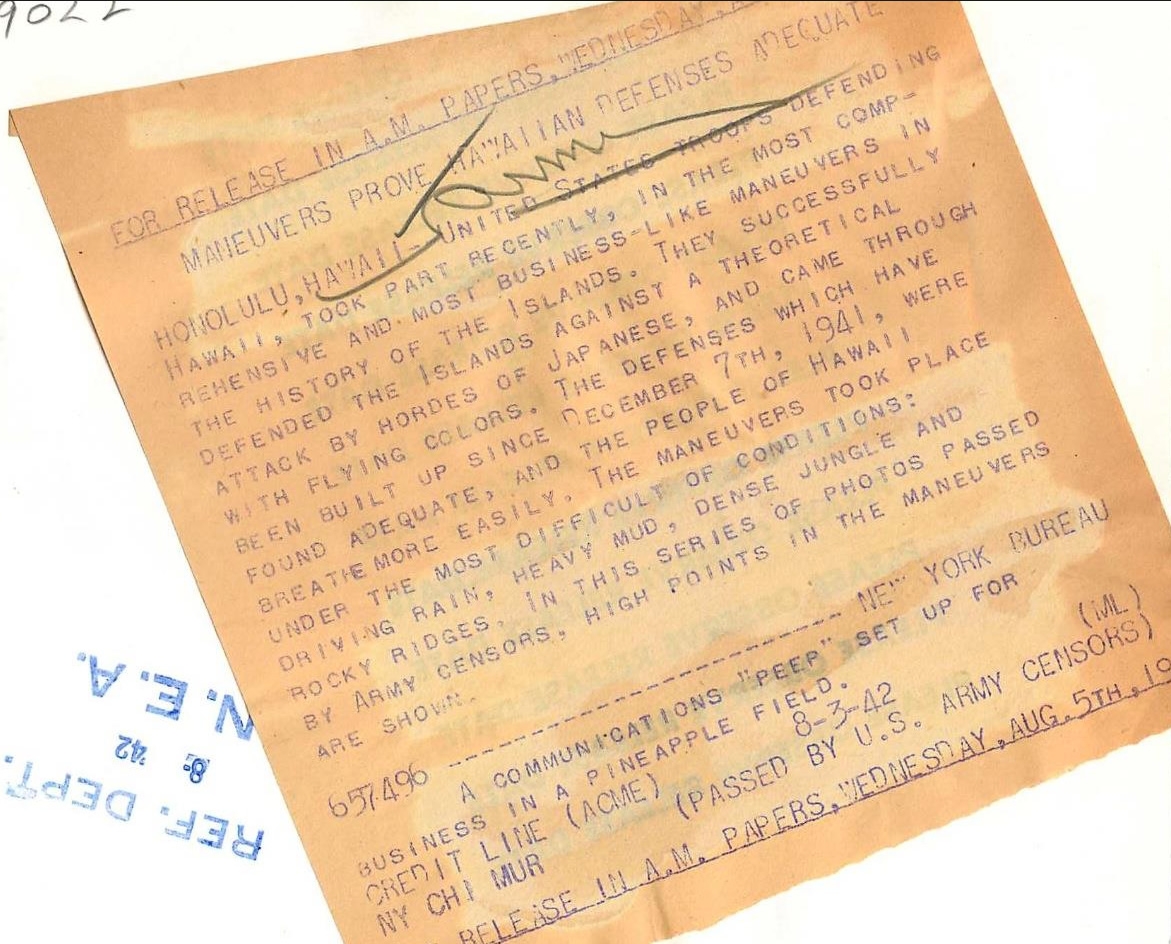 9022
FOR RELEASE IN A.M. PAPERS, WEDNESDAY,
MANEUVERS PROVE HAWAIIAN DEFENSES ADEQUATE
HONOLULU, HAWAII--UNITED STATES TROOPS DEFENDING
HAWAII, TOOK PART RECENTLY, IN THE MOST COMP-
REHENSIVE AND MOST BUSINESS-LIKE MANEUVERS IN
THE HISTORY OF THE ISLANDS. THEY SUCCESSFULLY
DEFENDED THE ISLANDS AGAINST A THEORETICAL
ATTACK BY HORDES OF JAPANESE, AND CAME THROUGH
WITH FLYING COLORS. THE DEFENSES WHICH HAVE
BEEN BUILT UP SINCE DECEMBER 7TH, 1941, WERE
FOUND ADEQUATE, AND THE PEOPLE OF HAWAII
BREATHE MORE EASILY. THE MANEUVERS TOOK PLACE
UNDER THE MOST DIFFICULT OF CONDITIONS:
DRIVING RAIN, HEAVY MUD, DENSE JUNGLE AND
ROCKY RIDGES. IN THIS SERIES OF PHOTOS PASSED
BY ARMY CENSORS, HIGH POINTS IN THE MANEUVERS
ARE SHOWN.
657496 ---------------------------- NEW YORK BUREAU
A COMMUNICATIONS "PEEP" SET UP FOR
BUSINESS IN A PINEAPPLE FIELD.
CREDIT LINE (ACME) 8-3-42 (ML)
NY CHI MUR (PASSED BY U.S. ARMY CENSORS)
RELEASE IN A.M. PAPERS, WEDNESDAY, AUG. 5TH, 19
REF. DEPT.
8- '42
N.E.A.